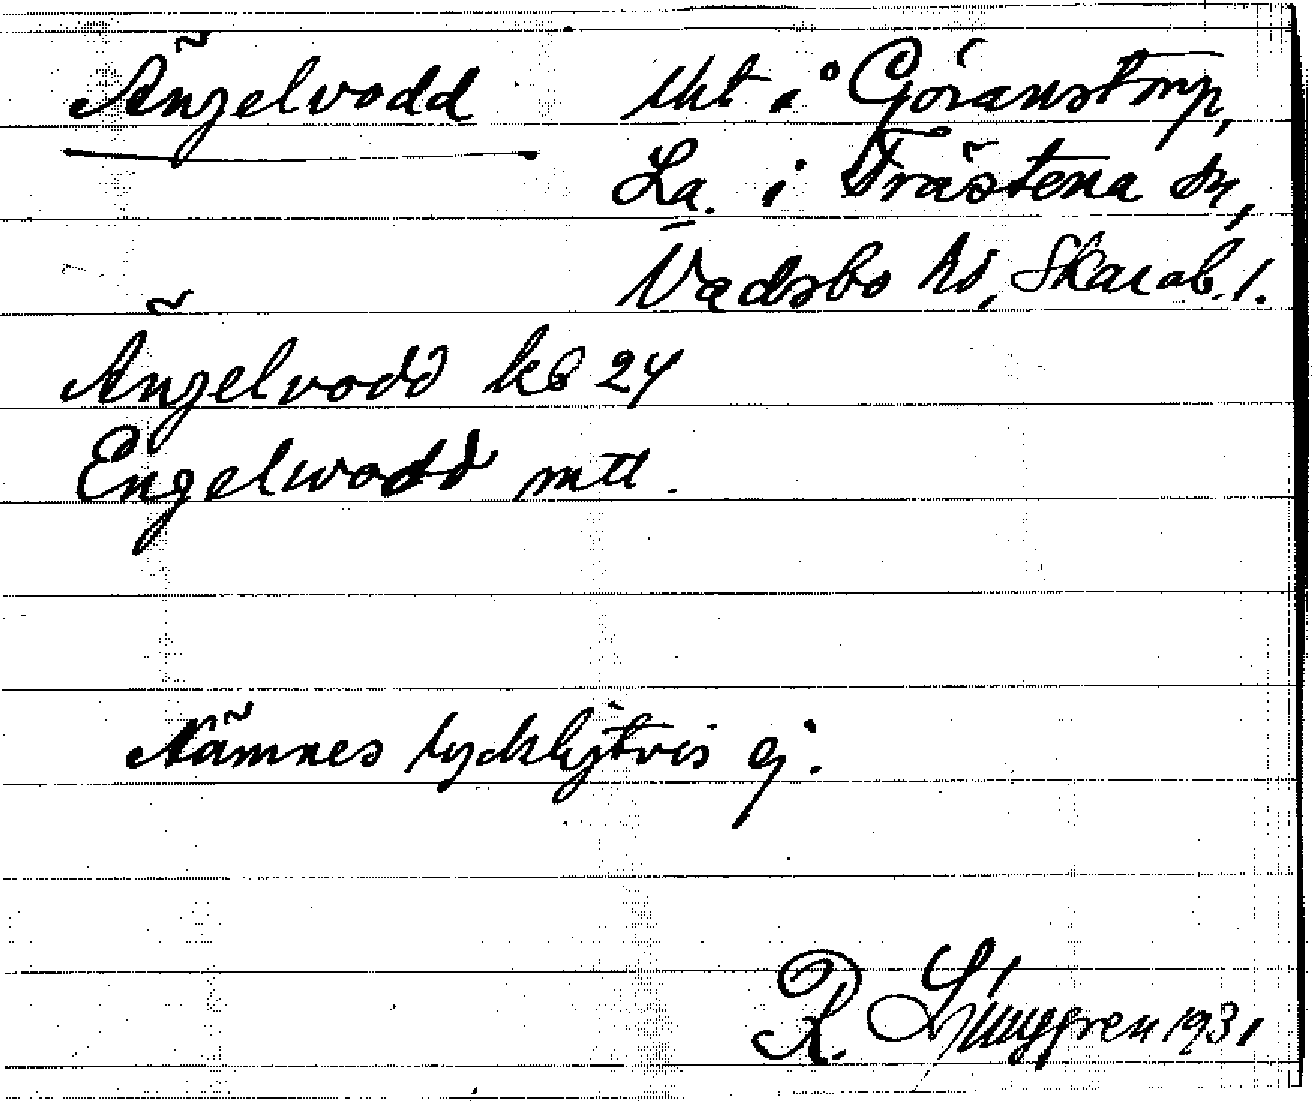 Ängelvodd
Uht å Göranstorp,
La. i Trästena sn,
Vadsbo hd, Skarab. l.
Ängelvodd kb 24
Engelwodd mtl.
Nämnes lyckligtvis ej.
R. Ljunggren 1931